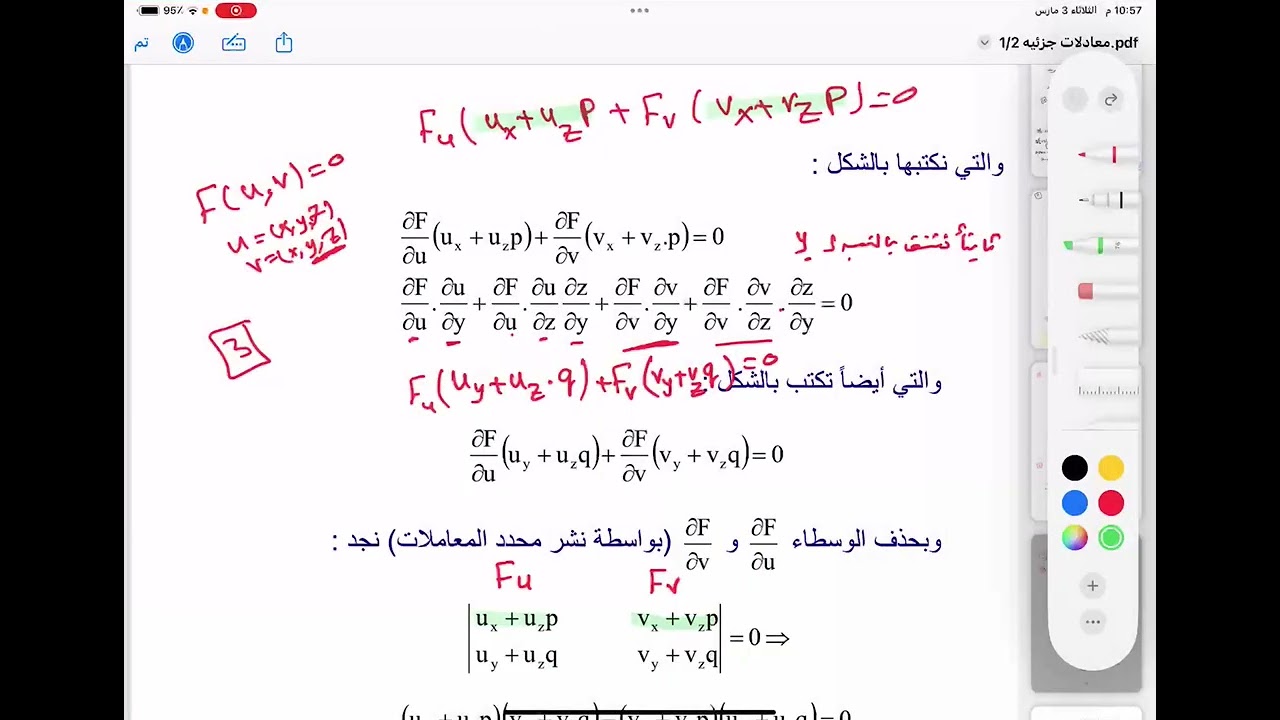 10:57 م الثلاثاء 3 مارس
95%
معادلات جزئيه 1/2.pdf
تم
F_u(u_x+u_z p + F_v (v_x+v_z p)=0
والتي نكتبها بالشكل :
F(u,v)=0
u=(x,y,z)
v=(x,y,z)
∂F/∂u (u_x + u_z p) + ∂F/∂v (v_x + v_z.p) = 0
ثانياً نشتق بالنسبة لـ y
∂F/∂u . ∂u/∂y + ∂F/∂u . ∂u/∂z ∂z/∂y + ∂F/∂v . ∂v/∂y + ∂F/∂v . ∂v/∂z . ∂z/∂y = 0
3
F_u(u_y+u_z·q)+F_v(v_y+v_z q)=0
والتي أيضاً تكتب بالشكل :
∂F/∂u (u_y + u_z q) + ∂F/∂v (v_y + v_z q) = 0
وبحذف الوسطاء ∂F/∂u و ∂F/∂v (بواسطة نشر محدد المعاملات) نجد :
Fu Fv
| u_x + u_z p v_x + v_z p |
| u_y + u_z q v_y + v_z q | = 0 ⇒